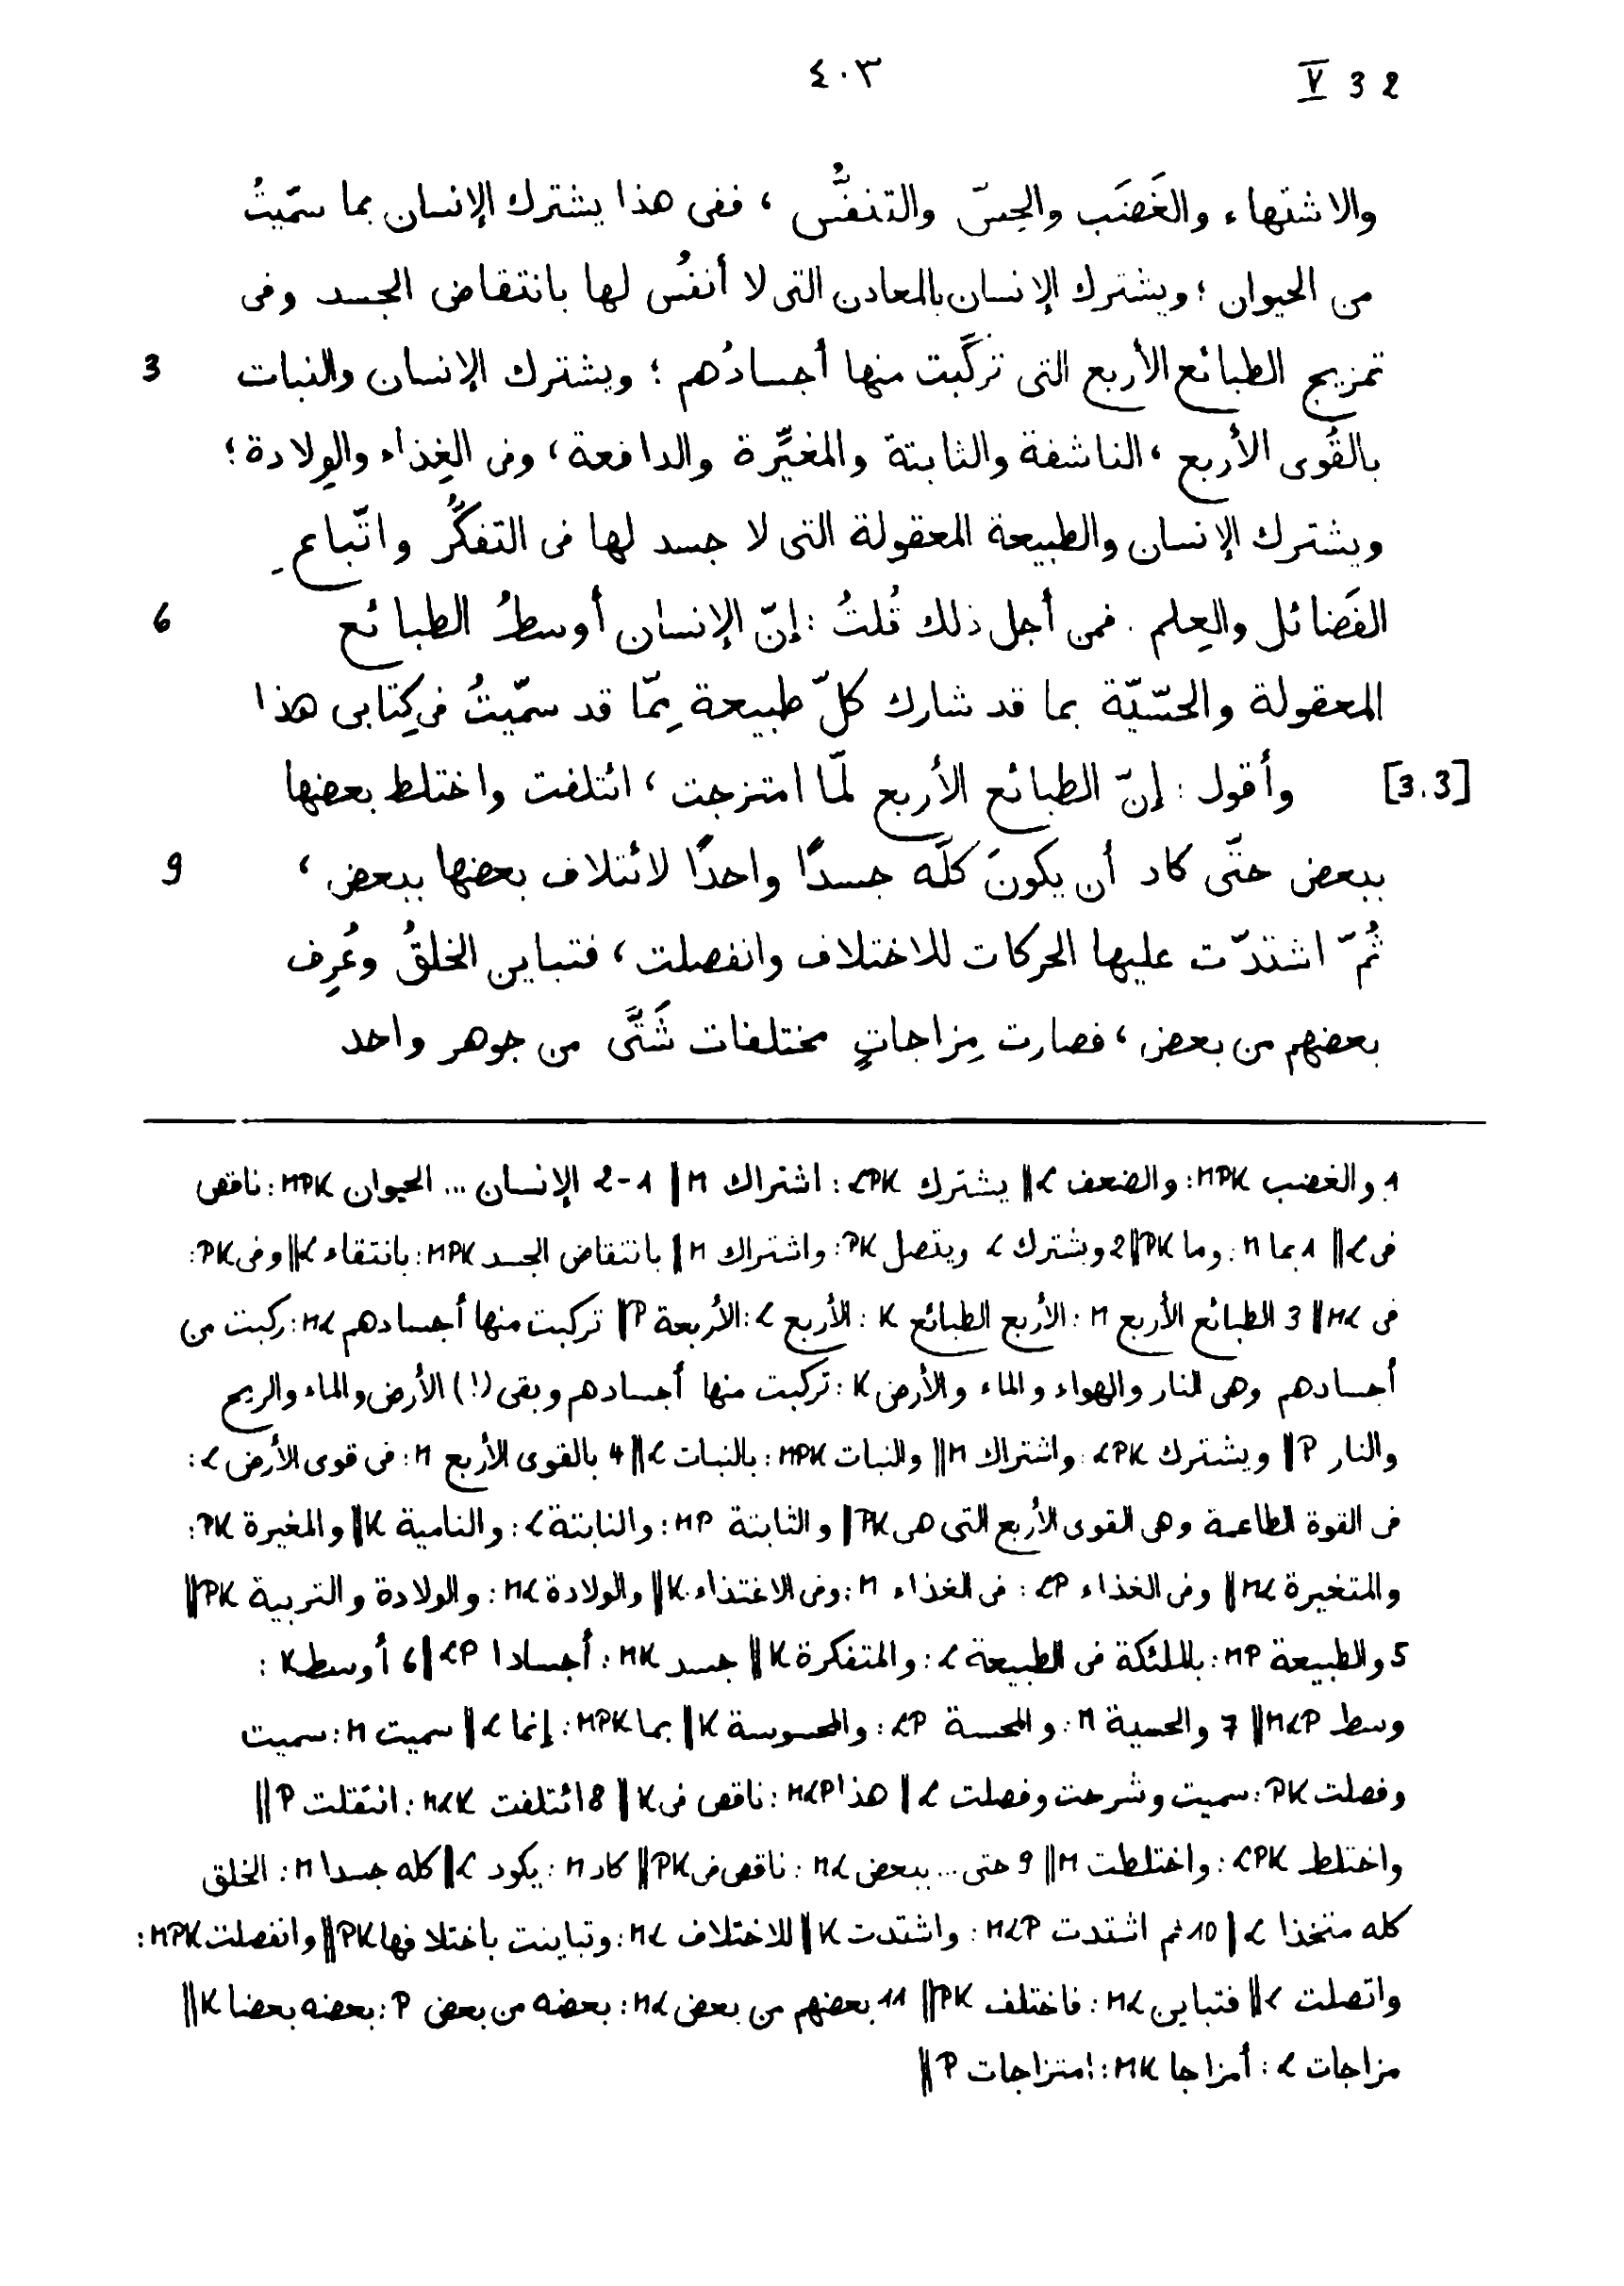 ٤٠٣
V 3 2
والاشتهاء والغَضَب والحِسّ والتنفُّس ، ففى هذا يشترك الإنسان بما سمّيتُ
من الحيوان ؛ ويشترك الإنسان بالمعادن التى لا أنفُس لها بانتقاض الجسد وفى
تمزيج الطبائع الأربع التى تركّبت منها أجسادُهم ؛ ويشترك الإنسان والنبات 3
بالقُوى الأربع ، الناشفة والثابتة والمغيِّرة والدافعة ، وفى الغِذاء والوِلادة ؛
ويشترك الإنسان والطبيعة المعقولة التى لا جسد لها فى التفكُّر واتّباعِ
الفَضائل والعِلم . فمن أجل ذلك قُلتُ : إنّ الإنسان أوسطُ الطبائع 6
المعقولة والحسّيّة بما قد شارك كلّ طبيعة مِمّا قد سمّيتُ فى كِتابى هذا
[3.3] وأقول : إنّ الطبائع الأربع لمّا امتزجت ، ائتلفت واختلط بعضها
ببعض حتَّى كاد أن يكونَ كلَّه جسدًا واحدًا لائتلاف بعضها ببعض ، 9
ثُمّ اشتدّت عليها الحركات للاختلاف وانفصلت ، فتباين الخلقُ وعُرِف
بعضهم من بعض ، فصارت مِزاجاتٍ مختلفات شَتَّى من جوهر واحد
1 والغضب MPK : والضعف L || يشترك LPK : اشتراك M || 1-2 الإنسان ... الحيوان MPK : ناقص
فى L || 1 بما M : وما PK || 2 ويشترك L ويتصل PK : واشتراك M || بانتقاض الجسد MPK : بانتقاء L || وفى PK :
فى ML || 3 الطبائع الأربع M : الأربع الطبائع K : الأربع L : الأربعة P || تركبت منها أجسادهم ML : ركبت من
أجسادهم وهى النار والهواء والماء والأرض K : تركبت منها أجسادهم وبقى (!) الأرض والماء والريح
والنار P || ويشترك LPK : واشتراك M || والنبات MPK : بالنبات L || 4 بالقوى الأربع M : فى قوى الأرض L :
فى القوة الطاعمة وهى القوى الأربع التى هى PK || والثابتة MP : والنابتة L : والنامية K || والمغيرة PK :
والمتغيرة ML || وفى الغذاء LP : فى الغذاء M : وفى الاغتذاء K || والولادة ML : والولادة والتربية PK ||
5 والطبيعة MP : بالملئكة فى الطبيعة L : والمتفكرة K || جسد MK : أجسادا LP || 6 أوسط K :
وسط MLP || 7 والحسية M : والمحسة LP : والمحسوسة K || بما MPK : إنما L || سميت M : سميت
وفصلت PK : سميت وشرحت وفصلت L || هذا MLP : ناقص فى K || 8 ائتلفت MLK : انتقلت P ||
واختلط LPK : واختلطت M || 9 حتى ... ببعض ML : ناقص فى PK || كاد M : يكود L || كله جسدا M : الخلق
كله متخذا L || 10 ثم اشتدت MLP : واشتدت K || للاختلاف ML : وتباينت باختلافها PK || وانفصلت MPK :
واتصلت L || فتباين ML : فاختلف PK || 11 بعضهم من بعض ML : بعضه من بعض P : بعضه بعضا K ||
مزاجات L : أمزاجا MK : امتزاجات P ||